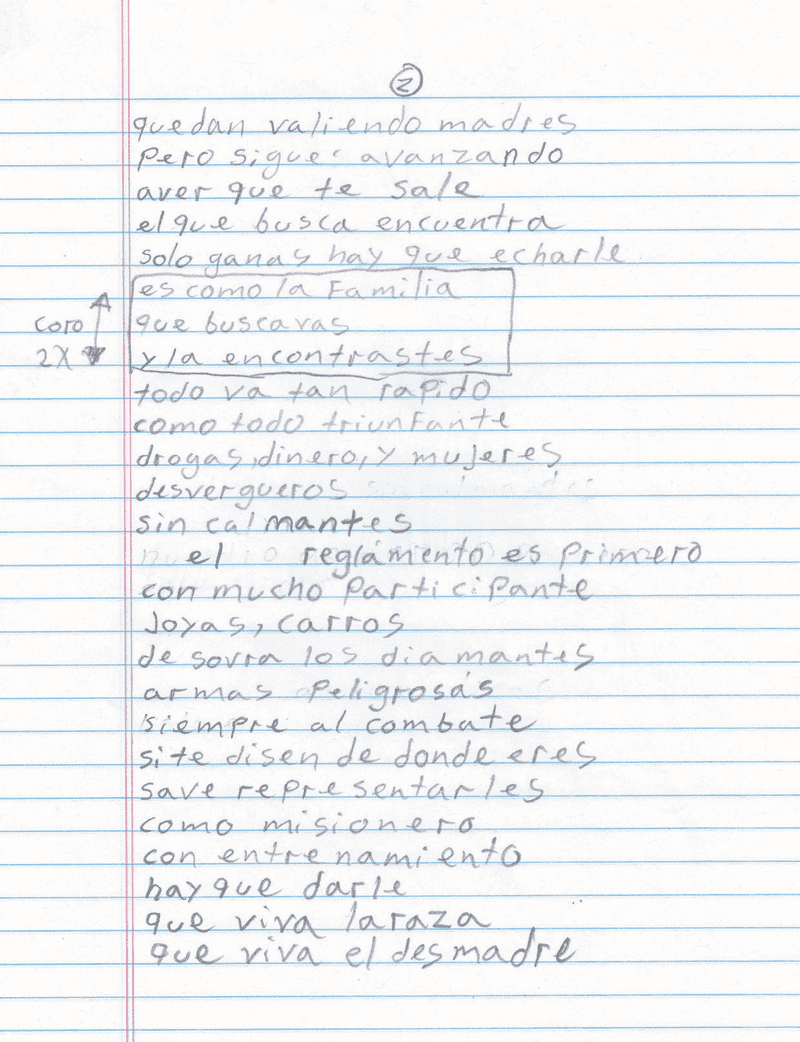 2
quedan valiendo madres
pero sigue avanzando
aver que te sale
el que busca encuentra
solo ganas hay que echarle
es como la Familia
que buscavas
y la encontrastes
coro
2X
todo va tan rapido
como todo triunfante
drogas, dinero, y mujeres
desvergueros
sin calmantes
el reglamento es primero
con mucho participante
Joyas, carros
de sovra los diamantes
armas peligrosas
siempre al combate
si te disen de donde eres
save representarles
como misionero
con entrenamiento
hay que darle
que viva la raza
que viva el desmadre